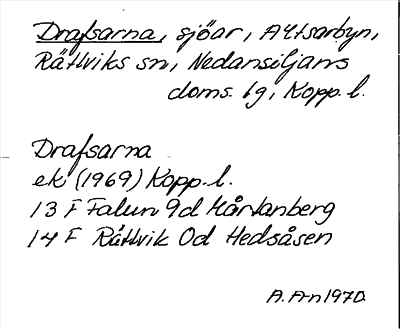 Drafsarna, sjöar, Altsarbyn,
Rättviks sn, Nedansiljans
doms. lg, Kopp. l.
Drafsarna
ek (1969) Kopp. l.
13 F Falun 9d Mårtanberg
14 F Rättvik 0d Hedsåsen
A. A-n 1970.